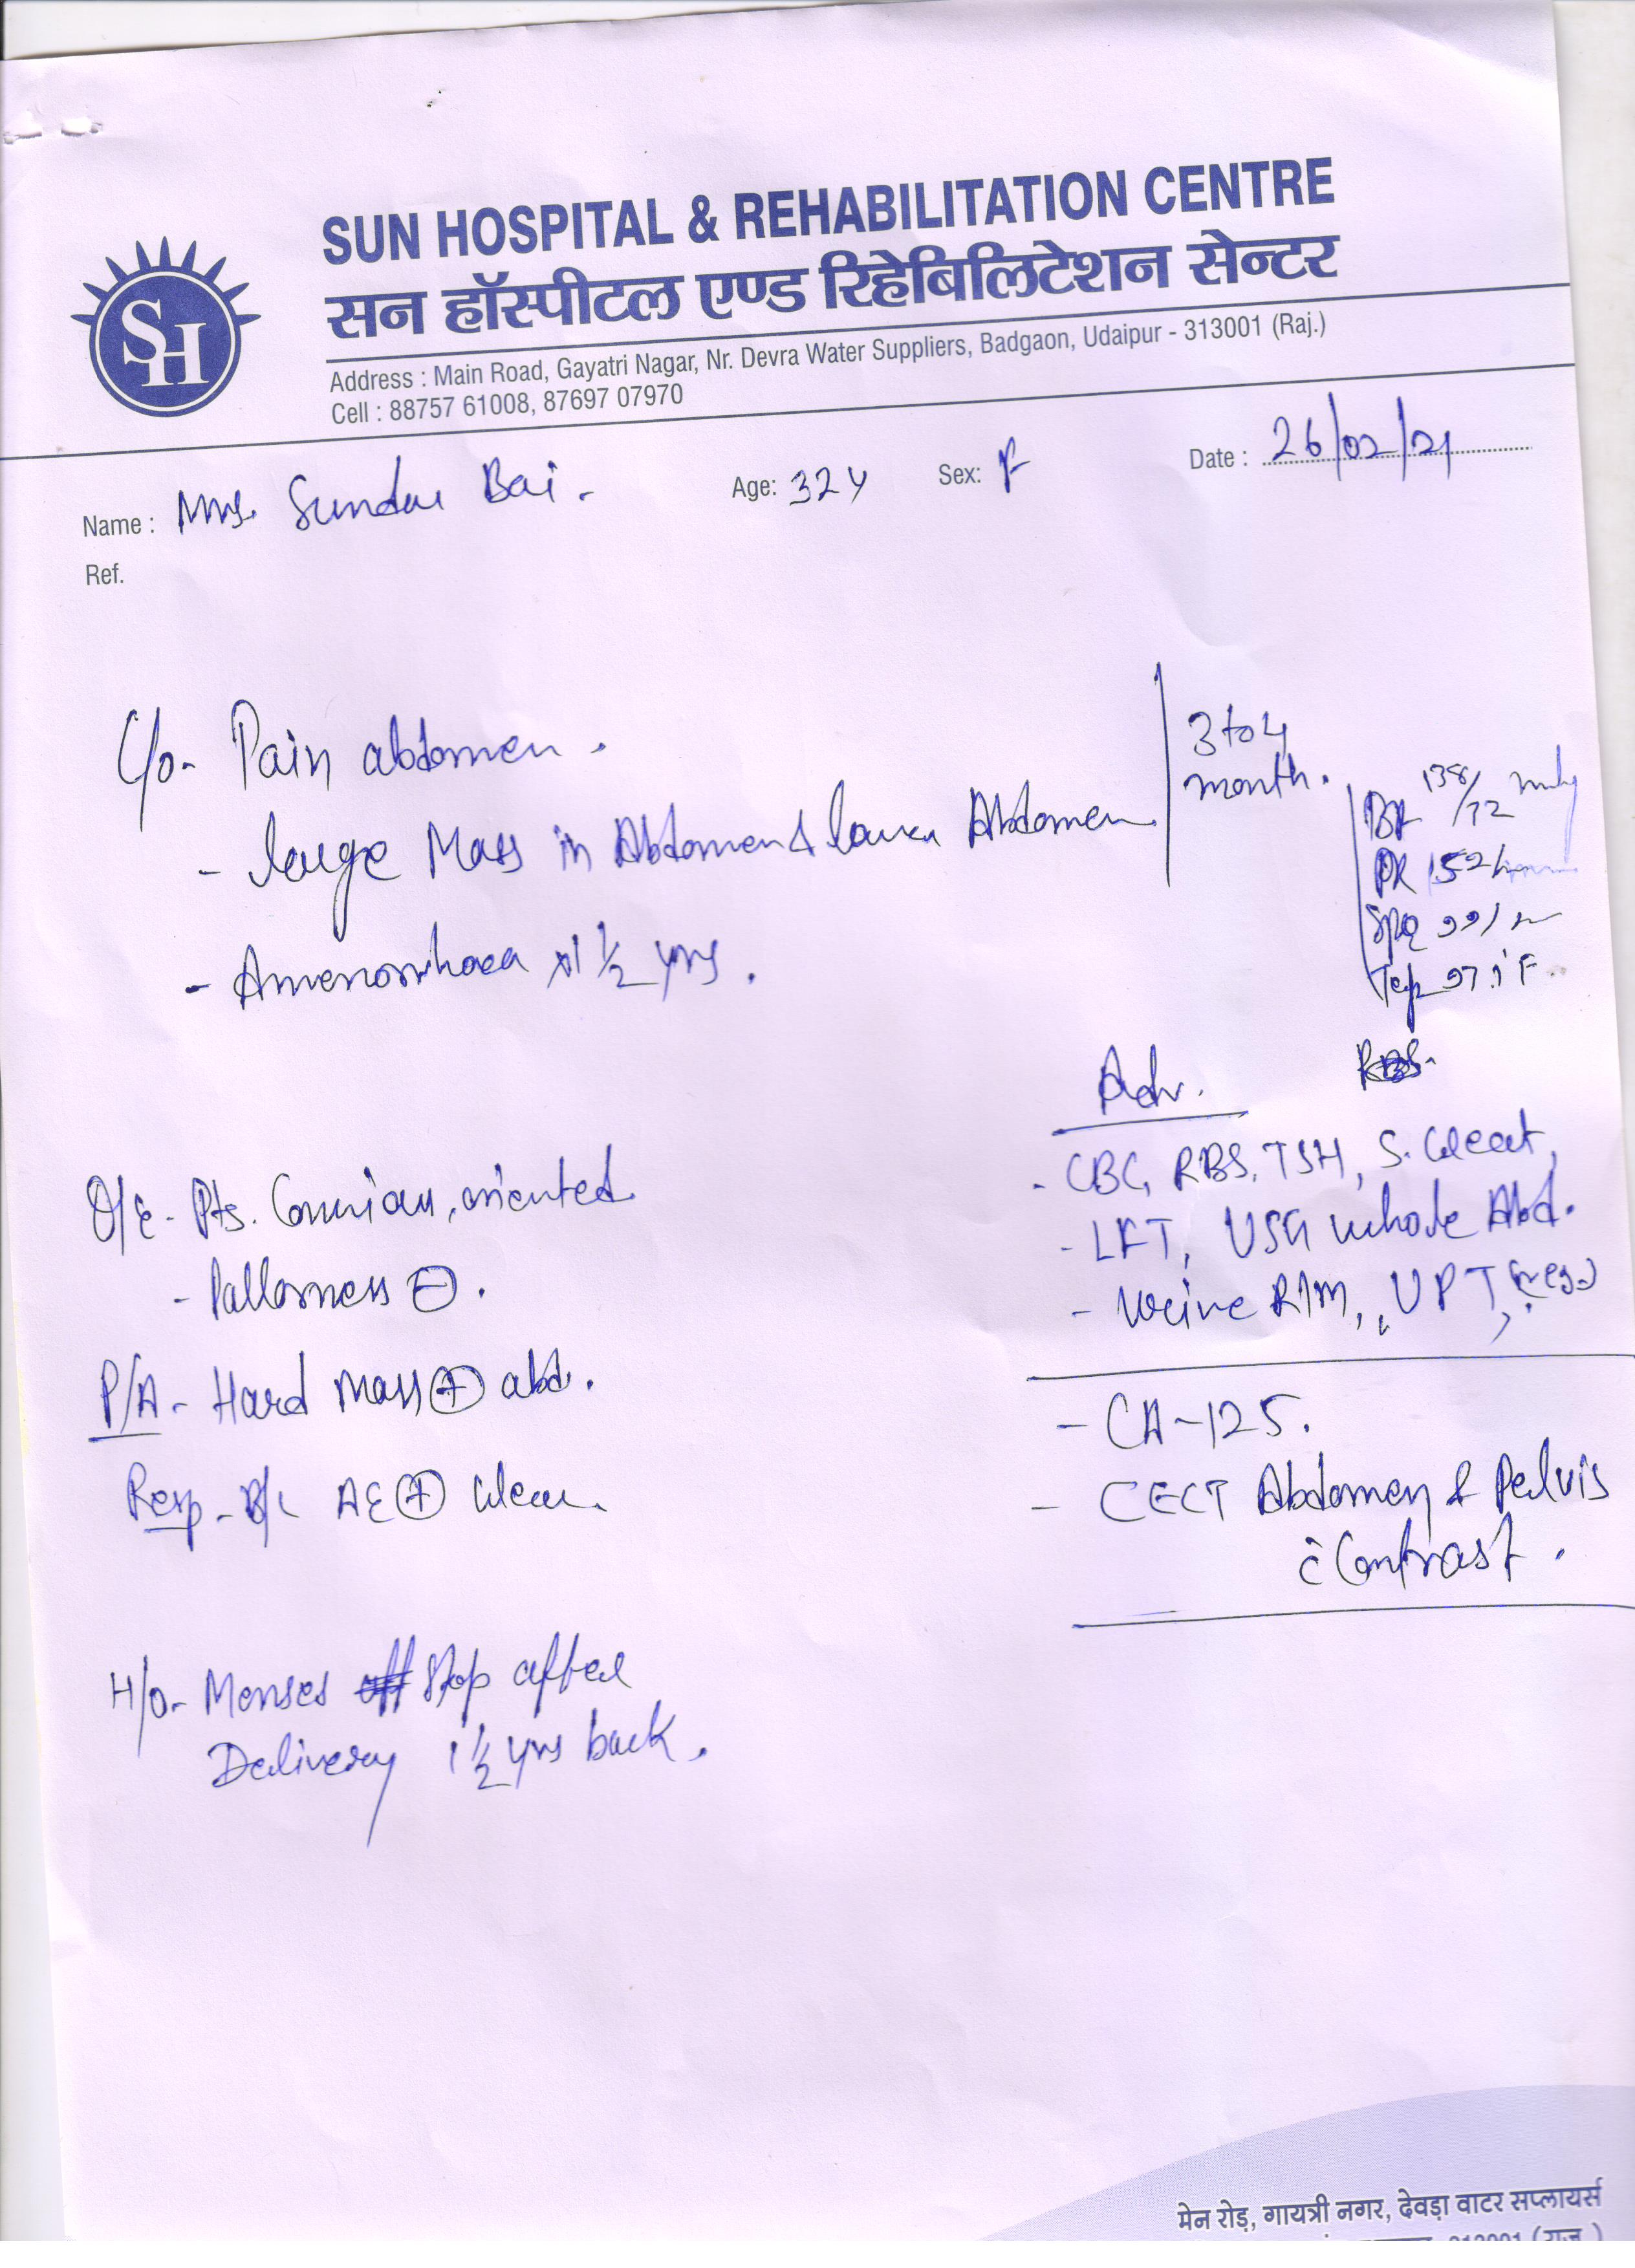 SUN HOSPITAL & REHABILITATION CENTRE
सन हॉस्पीटल एण्ड रिहेबिलिटेशन सेन्टर
Address : Main Road, Gayatri Nagar, Nr. Devra Water Suppliers, Badgaon, Udaipur - 313001 (Raj.)
Cell : 88757 61008, 87697 07970
SH
Name : Mrs. Sundar Bai. Age: 32 y Sex: F Date : 26/02/21
Ref.
C/o- Pain abdomen.
- large Mass in Abdomen & lower Abdomen
3 to 4
month.
- Amenorrhoea x 1 1/2 yrs.
BP 138/72
PR 152
SPO2 99
Temp 97.1°F.
RBS.
Adv.
- CBC, RBS, TSH, S. Creat,
- LFT, USG whole Abd.
- Urine R/M, UPT, (neg.)
- CA-125.
- CECT Abdomen & Pelvis
c̄ Contrast.
O/E- Pts. Conscious, oriented
- Pallorness ⊖.
P/A- Hard Mass ⊕ abd.
Resp- B/L AE ⊕ clear.
H/o- Menses stop after
Delivery 1 1/2 yrs back.
मेन रोड़, गायत्री नगर, देवड़ा वाटर सप्लायर्स
313001 (राज.)